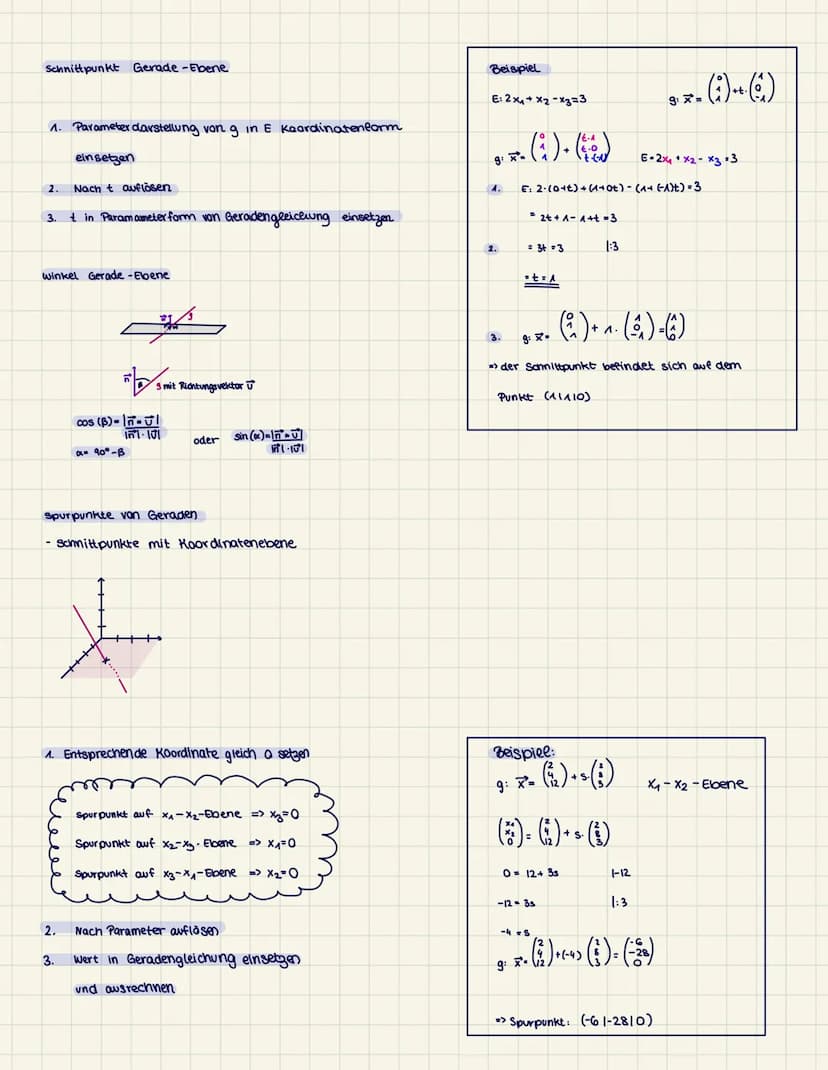 Schnittpunkt Gerade-Ebene
1. Parameterdarstellung von g in E Koordinatenform
einsetzen
2. Nach t auflösen
3. t in Paramameterform von Geradengleichung einsetzen
Winkel Gerade-Ebene
g
n⃗
g mit Richtungsvektor u⃗
cos (β) = |n⃗ ∘ u⃗| / |n⃗| · |u⃗| oder sin (α) = |n⃗ ∘ u⃗| / |n⃗| · |u⃗|
α = 90° - β
Spurpunkte von Geraden
- Schnittpunkte mit Koordinatenebene
1. Entsprechende Koordinate gleich 0 setzen
Spurpunkt auf x₁-x₂-Ebene => x₃=0
Spurpunkt auf x₂-x₃-Ebene => x₁=0
Spurpunkt auf x₃-x₁-Ebene => x₂=0
2. Nach Parameter auflösen
3. Wert in Geradengleichung einsetzen
und ausrechnen
Beispiel
E: 2x₁ + x₂ - x₃ = 3 g: x⃗ = (0 1 1) + t · (1 0 -1)
g: x⃗ = (0 1 1) + (t·1 t·0 t·(-1)) E = 2x₁ + x₂ - x₃ = 3
1. E: 2·(0+1t) + (1+0t) - (1+(-1)t) = 3
= 2t + 1 - 1 + t = 3
2. = 3t = 3 |:3
= t = 1
3. g: x⃗ = (0 1 1) + 1 · (1 0 -1) = (1 1 0)
=> der Schnittpunkt befindet sich auf dem
Punkt (1|1|0)
Beispiel:
g: x⃗ = (2 4 12) + s · (2 8 3) x₁ - x₂ - Ebene
(x₁ x₂ 0) = (2 4 12) + s · (2 8 3)
0 = 12 + 3s |-12
-12 = 3s |:3
-4 = s
g: x⃗ = (2 4 12) + (-4) (2 8 3) = (-6 -28 0)
=> Spurpunkt: (-6|-28|0)